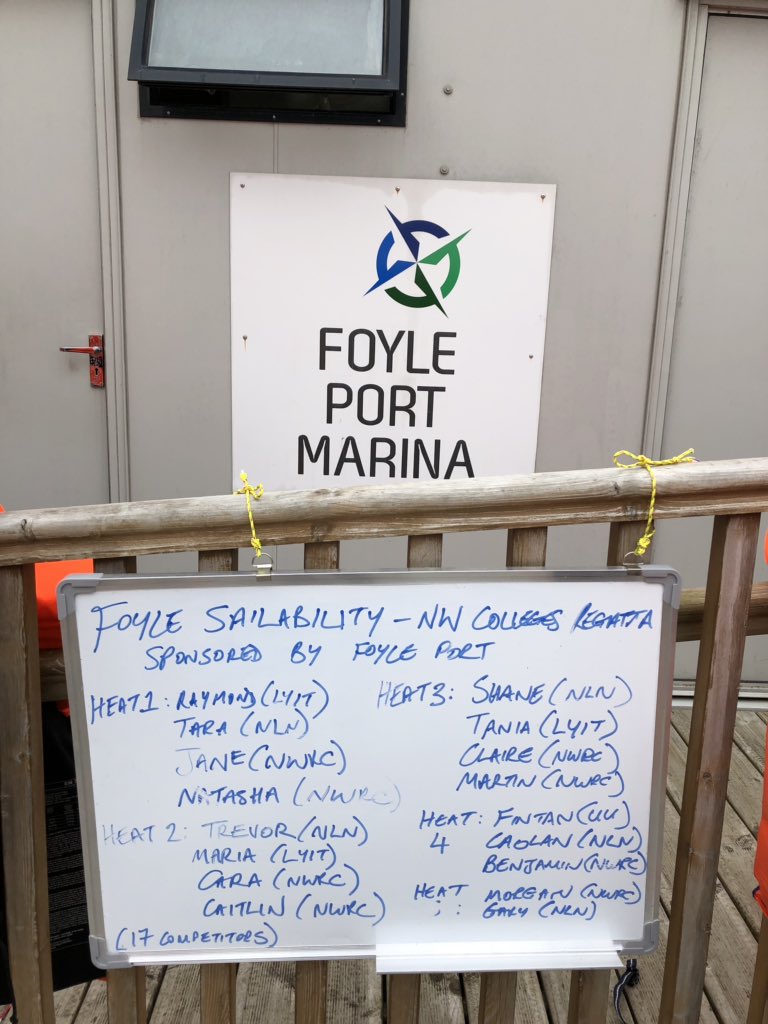 FOYLE
PORT
MARINA
FOYLE SAILABILITY - NW COLLEGES REGATTA
SPONSORED BY FOYLE PORT
HEAT 1: RAYMOND (LYIT)
TARA (NLN)
JANE (NWRC)
NATASHA (NWRC)
HEAT 2: TREVOR (NLN)
MARIA (LYIT)
CARA (NWRC)
CAITLIN (NWRC)
(17 COMPETITORS)
HEAT 3: SHANE (NLN)
TANIA (LYIT)
CLAIRE (NWRC)
MARTIN (NWRC)
HEAT: FINTAN (UU)
4 CAOLAN (NLN)
BENJAMIN (NWRC)
HEAT MORGAN (NWRC)
: GARY (NLN)